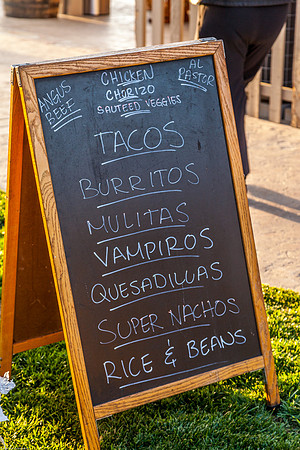 ANGUS
BEEF
CHICKEN
CHORIZO
SAUTEED VEGGIES
AL
PASTOR
TACOS
BURRITOS
MULITAS
VAMPIROS
QUESADILLAS
SUPER NACHOS
RICE & BEANS